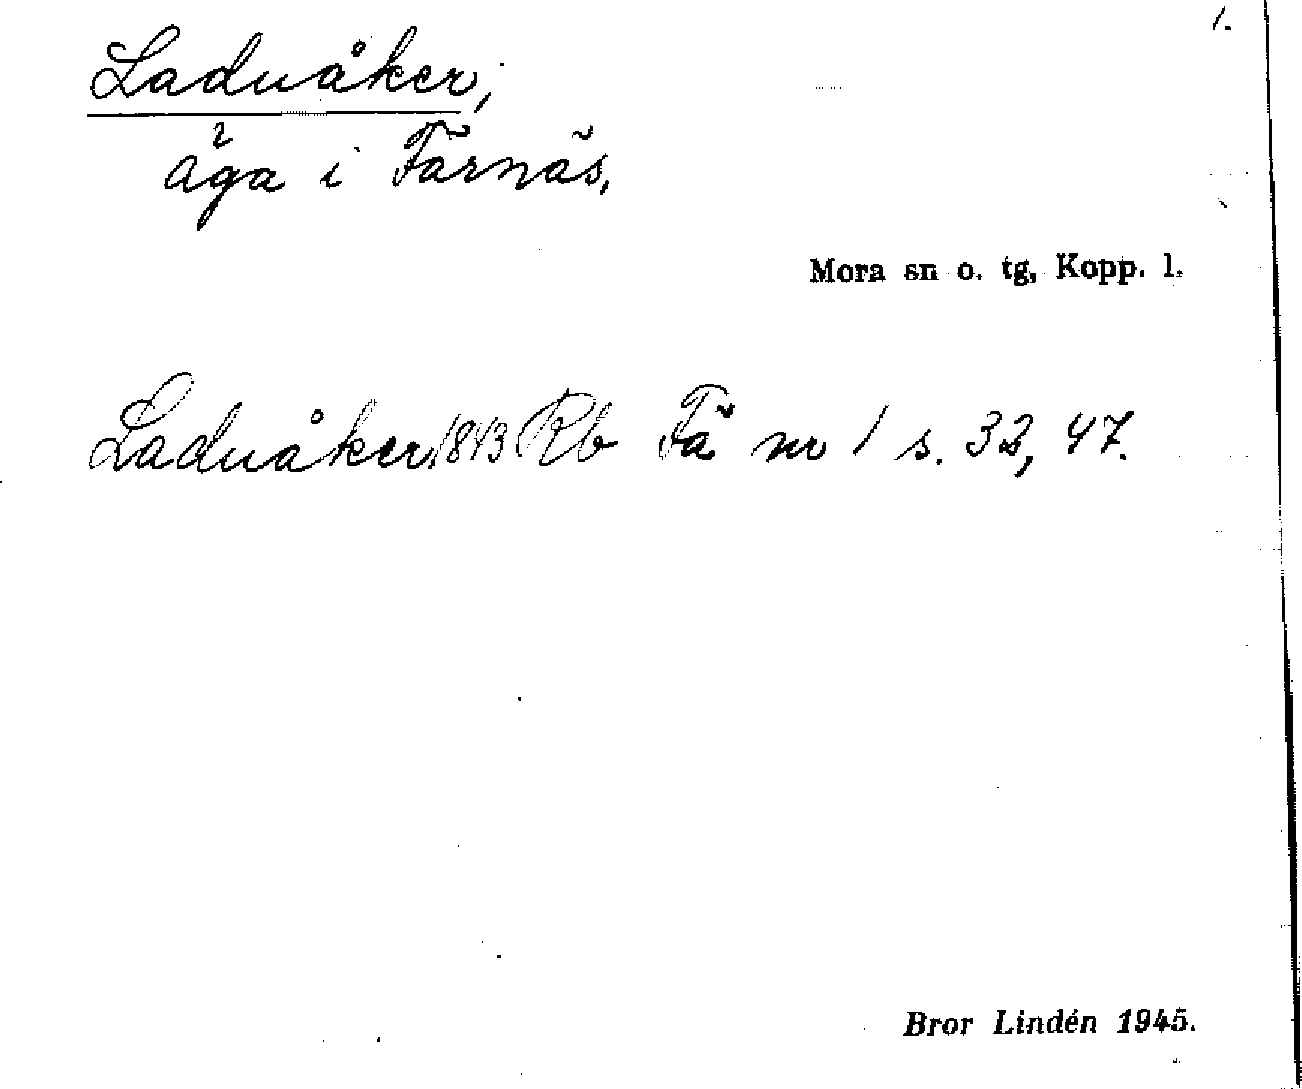 1.
Laduåker,
äga i Färnäs,
Mora sn o. tg, Kopp. l.
Laduåker, 1843 Rb Fä nr 1 s. 32, 47.
Bror Lindén 1945.